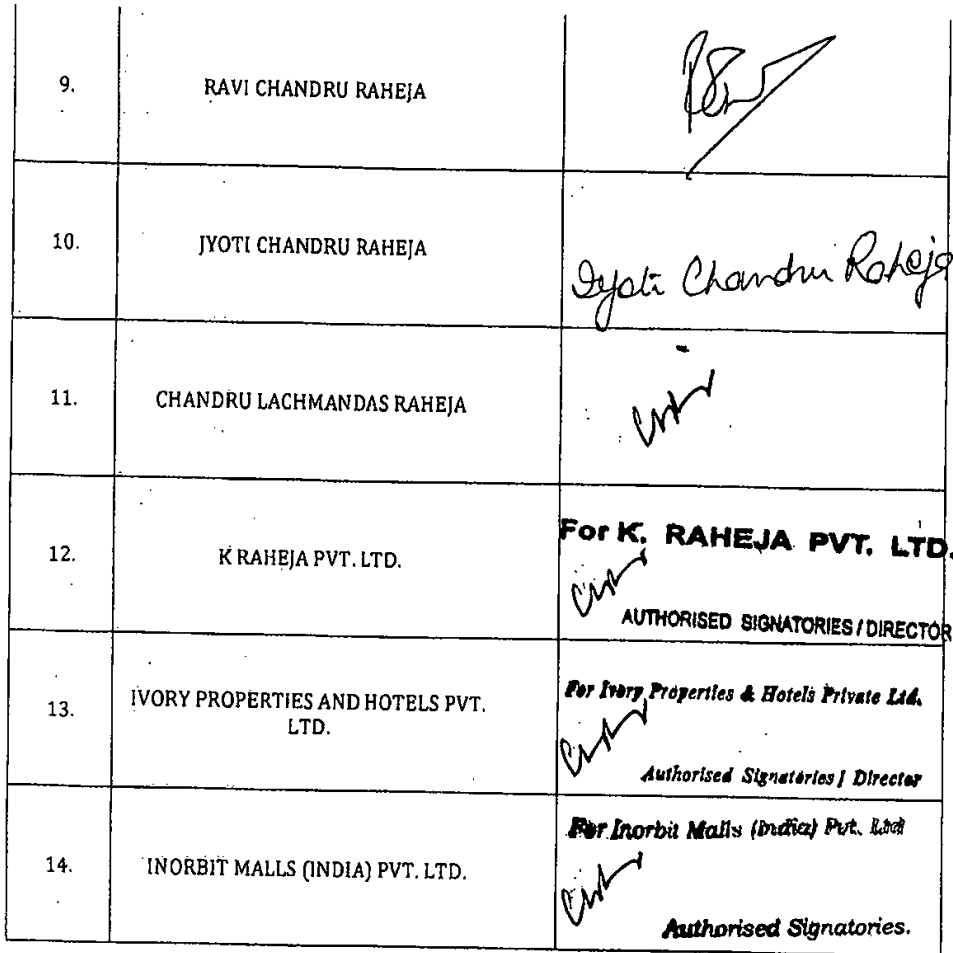 9.
RAVI CHANDRU RAHEJA
10.
JYOTI CHANDRU RAHEJA
Jyoti Chandru Raheja
11.
CHANDRU LACHMANDAS RAHEJA
12.
K RAHEJA PVT. LTD.
For K. RAHEJA PVT. LTD.
AUTHORISED SIGNATORIES / DIRECTOR
13.
IVORY PROPERTIES AND HOTELS PVT.
LTD.
For Ivory Properties & Hotels Private Ltd.
Authorised Signatories / Director
14.
INORBIT MALLS (INDIA) PVT. LTD.
For Inorbit Malls (India) Pvt. Ltd
Authorised Signatories.